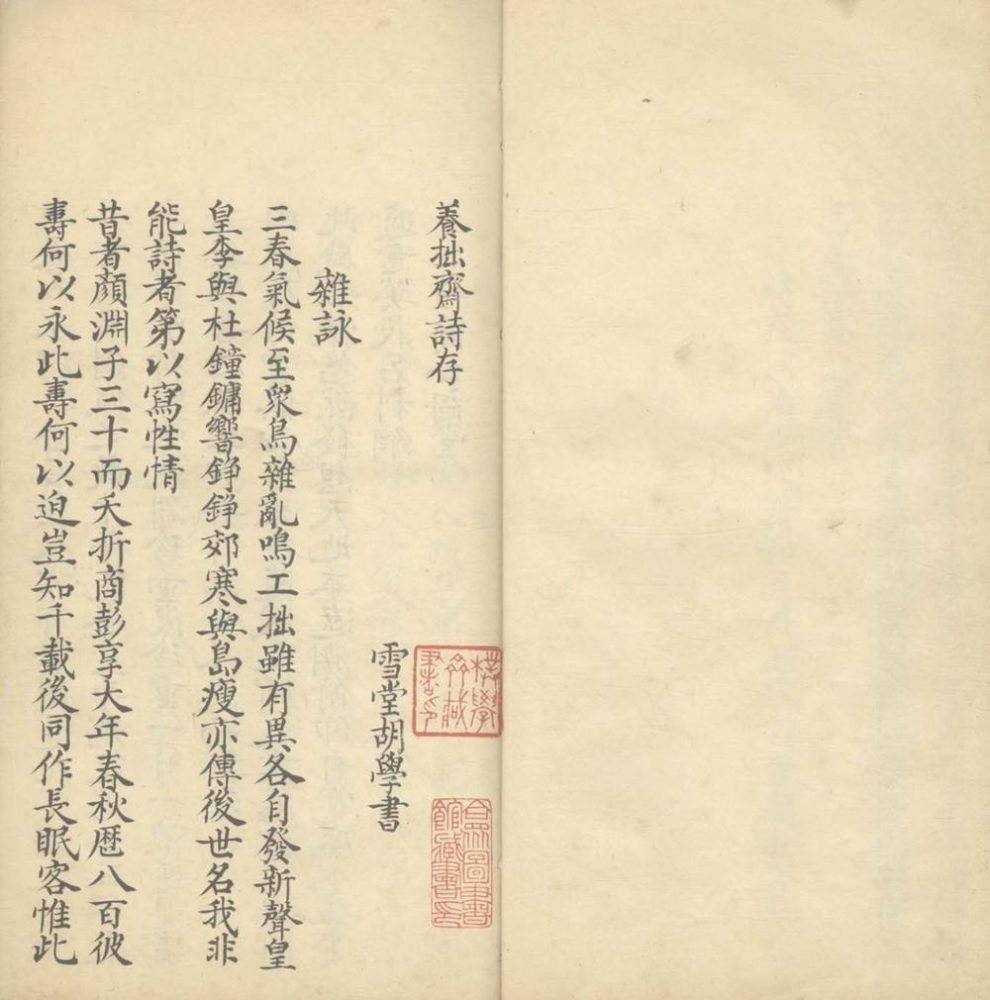 養拙齋詩存
雪堂胡學書
雜詠
三春氣候至衆鳥雜亂鳴工拙雖有異各自發新聲皇
皇李與杜鐘鏞響錚錚郊寒與島瘦亦傳後世名我非
能詩者第以寫性情
昔者顏淵子三十而夭折商彭享大年春秋歷八百彼
壽何以永此壽何以迫豈知千載後同作長眠客惟此